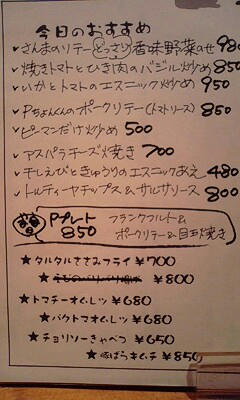 今日のおすすめ
✓さんまのソテーどっさり香味野菜のせ 980
✓焼きトマトとひき肉のバジル炒め 850
✓いかとトマトのエスニック炒め 950
✓Pちょんくんのポークソテー(トマトソース) 850
✓ピーマンだけ炒め 500
✓アスパラチーズ焼き 700
✓干しえびときゅうりのエスニックあえ 480
✓トルティーヤチップス&サルサソース 800
Pプレート フランクフルト&
850 ポークソテー&目玉焼き
★タルタルささみフライ ¥700
★えびのパリパリ揚げ ¥800
★トマチーオムレツ ¥680
★バクトマオムレツ ¥680
★チョリソーきゃべつ ¥650
★豚ばらキムチ ¥850